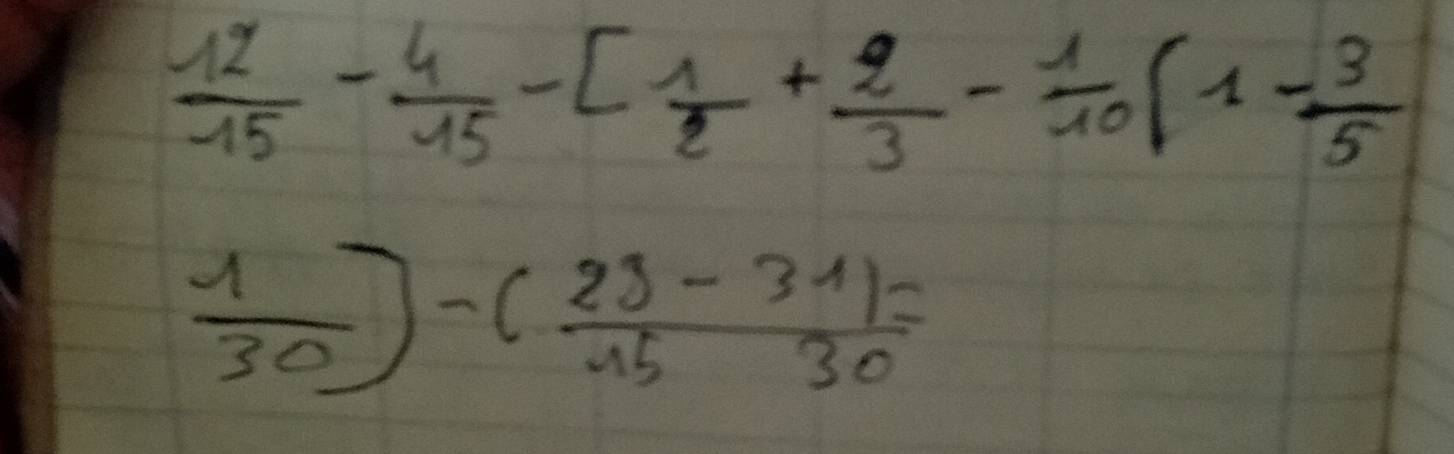 12/15 - 4/15 - [ 1/2 + 2/3 - 1/10 ( 1 - 3/5
1/30 ) - ( 23/15 - 31/30 ) =